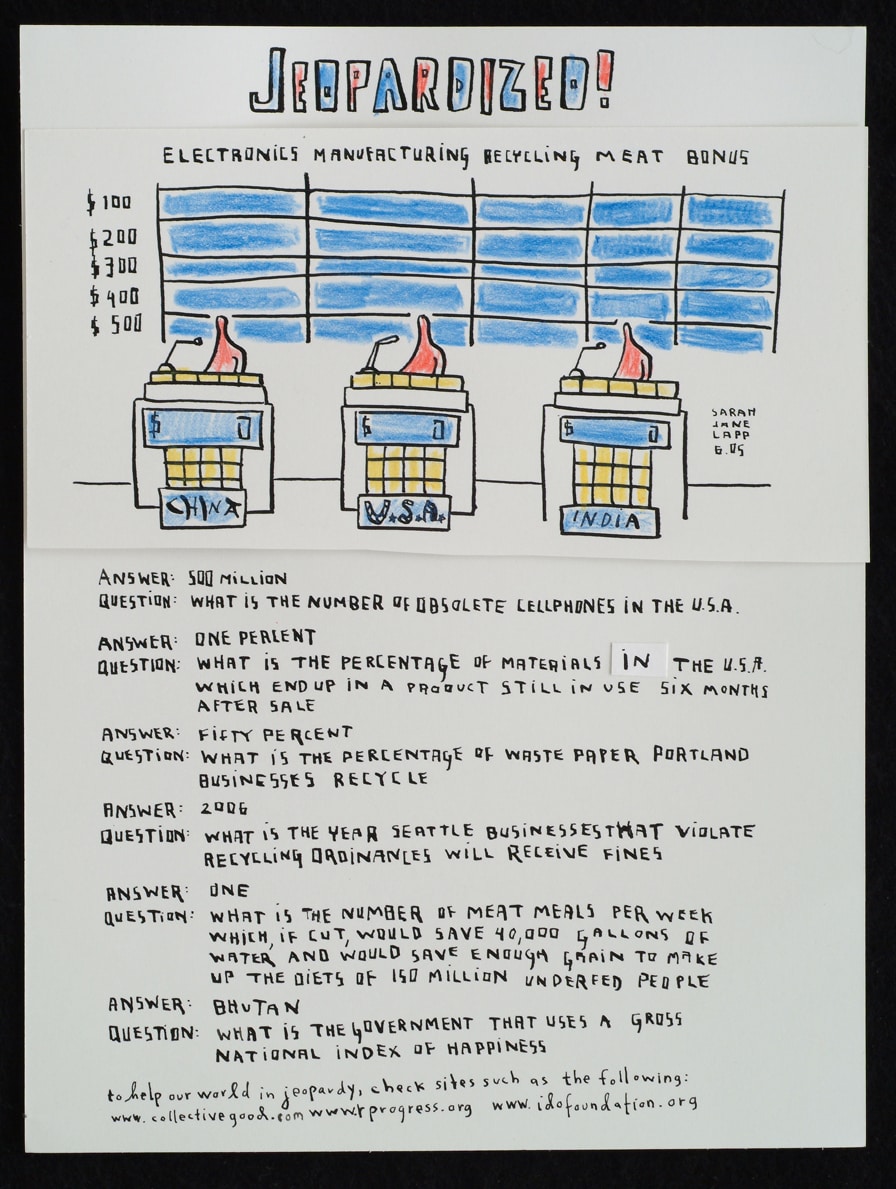 JEOPARDIZED!
ELECTRONICS MANUFACTURING RECYCLING MEAT BONUS
$100
$200
$300
$400
$500
$ 0
$ 0
$ 0
CHINA
U.S.A.
INDIA
SARAH
JANE
LAPP
6.05
ANSWER: 500 MILLION
QUESTION: WHAT IS THE NUMBER OF OBSOLETE CELLPHONES IN THE U.S.A.
ANSWER: ONE PERCENT
QUESTION: WHAT IS THE PERCENTAGE OF MATERIALS IN THE U.S.A.
WHICH END UP IN A PRODUCT STILL IN USE SIX MONTHS
AFTER SALE
ANSWER: FIFTY PERCENT
QUESTION: WHAT IS THE PERCENTAGE OF WASTE PAPER PORTLAND
BUSINESSES RECYCLE
ANSWER: 2006
QUESTION: WHAT IS THE YEAR SEATTLE BUSINESSES THAT VIOLATE
RECYCLING ORDINANCES WILL RECEIVE FINES
ANSWER: ONE
QUESTION: WHAT IS THE NUMBER OF MEAT MEALS PER WEEK
WHICH, IF CUT, WOULD SAVE 40,000 GALLONS OF
WATER AND WOULD SAVE ENOUGH GRAIN TO MAKE
UP THE DIETS OF 150 MILLION UNDERFED PEOPLE
ANSWER: BHUTAN
QUESTION: WHAT IS THE GOVERNMENT THAT USES A GROSS
NATIONAL INDEX OF HAPPINESS
to help our world in jeopardy, check sites such as the following:
www.collectivegood.com www.rprogress.org www.idofoundation.org